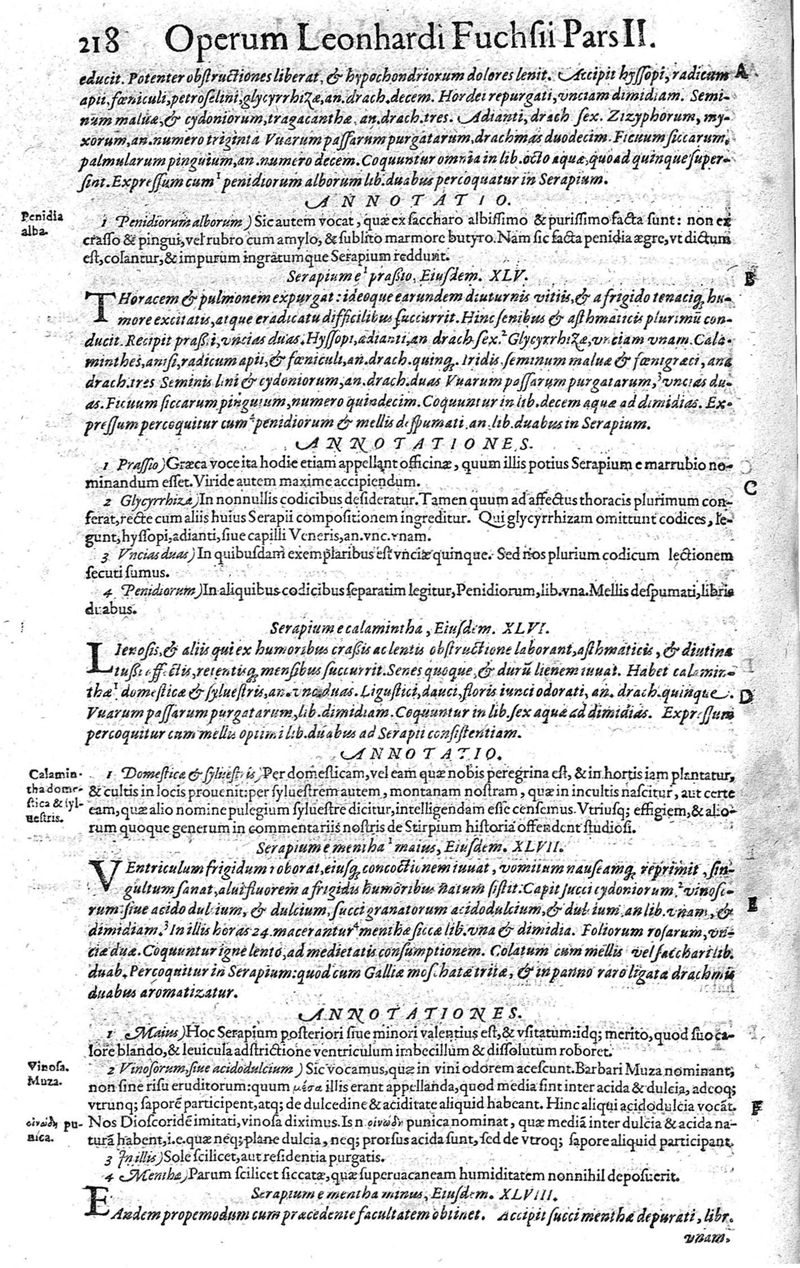 218 Operum Leonhardi Fuchsii Pars II.
educit. Potenter obſtructiones liberat, & hypochondriorum dolores lenit. Accipit hyſſopi, radicum A
apii, fœniculi, petroſelini, glycyrrhizæ, an. drach. decem. Hordei repurgati, vnciam dimidiam. Semi-
num maluæ, & cydoniorum, tragacanthæ an. drach. tres. Adianti, drach ſex. Zizyphorum, my-
xorum, an. numero triginta Vuarum paſſarum purgatarum, drachmas duodecim. Ficuum ſiccarum,
palmularum pinguium, an. numero decem. Coquuntur omnia in lib. octo aquæ, quoad quinque ſuper-
ſint. Expreſſum cum 1 penidiorum alborum lib. duabus percoquatur in Serapium.
ANNOTATIO.
Penidia alba.
1 Penidiorum alborum) Sic autem vocat, quæ ex ſaccharo albiſſimo & puriſſimo facta ſunt: non ex
craſſo & pingui, vel rubro cum amylo, & ſublito marmore butyro. Nam ſic facta penidia ægre, vt dictum
eſt, colantur, & impurum ingratumque Serapium reddunt.
Serapium e 1 praſſio, Eiuſdem. XLV. B
THoracem & pulmonem expurgat: ideoque earundem diuturnis vitiis, & a frigido tenaciq; hu-
more excitatis, atque eradicatu difficilibus ſuccurrit. Hinc ſenibus & aſthmaticis plurimū con-
ducit. Recipit praſſii, vncias duas. Hyſſopi, adianti, an drach. ſex. 2 Glycyrrhizæ, vnciam vnam. Cala-
minthes, aniſi, radicum apii, & fœniculi, an. drach. quinq;. Iridis, ſeminum maluæ & fœnigræci, ana
drach. tres Seminis lini & cydoniorum, an. drach. duas Vuarum paſſarum purgatarum, 3 vncias du-
as. Ficuum ſiccarum pinguium, numero quindecim. Coquuntur in lib. decem aquæ ad dimidias. Ex-
preſſum percoquitur cum 4 penidiorum & mellis deſpumati, an. lib. duabus in Serapium.
ANNOTATIONES.
1 Praſſio) Græca voce ita hodie etiam appellant officinæ, quum illis potius Serapium e marrubio no-
minandum eſſet. Viride autem maxime accipiendum. C
2 Glycyrrhizæ) In nonnullis codicibus deſideratur. Tamen quum ad affectus thoracis plurimum con-
ferat, recte cum aliis huius Serapii compoſitionem ingreditur. Qui glycyrrhizam omittunt codices, le-
gunt, hyſſopi, adianti, ſiue capilli Veneris, an. vnc. vnam.
3 Vncias duas) In quibuſdam exemplaribus eſt vnciæ quinque. Sed nos plurium codicum lectionem
ſecuti ſumus.
4 Penidiorum) In aliquibus codicibus ſeparatim legitur, Penidiorum, lib. vna. Mellis deſpumati, libris
duabus.
Serapium e calamintha, Eiuſdem. XLVI.
LIenoſis, & aliis qui ex humoribus craſſis ac lentis obſtructione laborant, aſthmaticis, & diutina
tuſſi effectis, retentiſq; menſibus ſuccurrit. Senes quoque, & durū lienem iuuat. Habet calamin-
thæ 1 domeſticæ & ſylueſtris, an. vnc. duas. Liguſtici, dauci, floris iunci odorati, an. drach. quinque. D
Vuarum paſſarum purgatarum, lib. dimidiam. Coquuntur in lib. ſex aquæ ad dimidias. Expreſſum
percoquitur cum mellis optimi lib. duabus ad Serapii conſiſtentiam.
ANNOTATIO.
Calamintha domeſtica & ſylueſtris.
1 Domeſticæ & ſylueſtris) Per domeſticam, vel eam quæ nobis peregrina eſt, & in hortis iam plantatur,
& cultis in locis prouenit: per ſylueſtrem autem, montanam noſtram, quæ in incultis naſcitur, aut certe
eam, quæ alio nomine pulegium ſylueſtre dicitur, intelligendam eſſe cenſemus. Vtriuſq; effigiem, & alio-
rum quoque generum in commentariis noſtris de Stirpium hiſtoria offendent ſtudioſi.
Serapium e mentha 1 maius, Eiuſdem. XLVII.
VEntriculum frigidum roborat, eiuſq; concoctionem iuuat, vomitum nauſeamq; reprimit, ſin-
gultum ſanat, alui fluorem a frigidis humoribus natum ſiſtit. Capit ſucci cydoniorum 2 vinoſo-
rum ſiue acido dulcium, & dulcium, ſucci granatorum acidodulcium, & dulcium an lib. vnam, & E
dimidiam. 3 In illis horas 24. macerantur 4 menthæ ſiccæ lib. vna & dimidia. Foliorum roſarum, vn-
ciæ duæ. Coquuntur igne lento, ad medietatis conſumptionem. Colatum cum mellis vel ſacchari lib.
duab. Percoquitur in Serapium: quod cum Galliæ moſchatæ tritæ, & in panno raro ligatæ drachmis
duabus aromatizatur.
ANNOTATIONES.
1 Maius) Hoc Serapium poſteriori ſiue minori valentius eſt, & vſitatum: idq; merito, quod ſuo ca-
lore blando, & leuicula adſtrictione ventriculum imbecillum & diſſolutum roboret.
Vinoſa. Muza.
2 Vinoſorum, ſiue acidodulcium) Sic vocamus, quæ in vini odorem aceſcunt. Barbari Muza nominant,
non ſine riſu eruditorum: quum μέσα illis erant appellanda, quod media ſint inter acida & dulcia, adeoq;
vtrunq; ſaporē participent, atq; de dulcedine & aciditate aliquid habeant. Hinc aliqui acidodulcia vocāt. F
οἰνώδη punica.
Nos Dioſcoridē imitati, vinoſa diximus. Is n. οἰνώδη punica nominat, quæ mediā inter dulcia & acida na-
turā habent, i.e. quæ neq; plane dulcia, neq; prorſus acida ſunt, ſed de vtroq; ſapore aliquid participant.
3 In illis) Sole ſcilicet, aut reſidentia purgatis.
4 Menthæ) Parum ſcilicet ſiccatæ, quæ ſuperuacaneam humiditatem nonnihil depoſuerit.
Serapium e mentha minus, Eiuſdem. XLVIII.
EAndem propemodum cum præcedente facultatem obtinet. Accipit ſucci menthæ depurati, libr.
vnam,